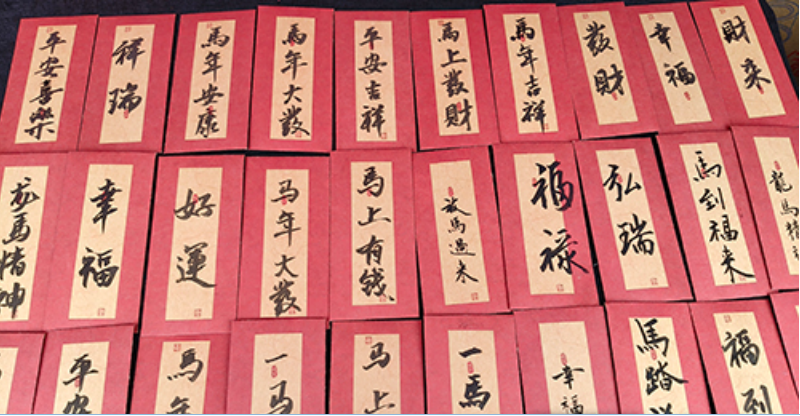 平安喜樂
祥瑞
馬年安康
馬年大發
平安吉祥
馬上發財
馬年吉祥
發財
幸福
財來
龙馬精神
幸福
好運
马年大發
馬上有钱
放馬過来
福祿
弘瑞
馬到福来
龍馬精神
平安
馬年
一马
马上
一馬
幸福
馬踏
福到